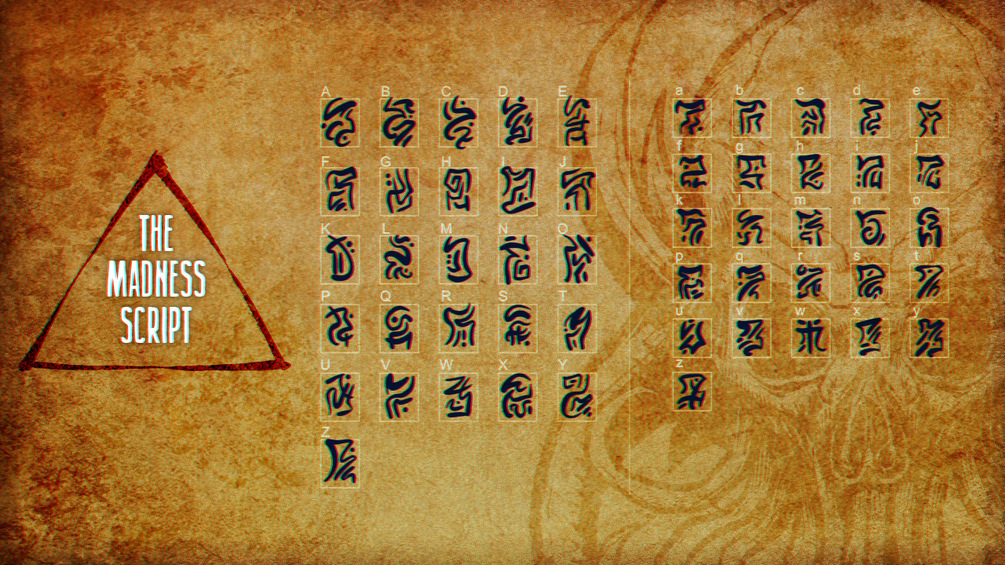 THE
MADNESS
SCRIPT
A B C D E
F G H I J
K L M N O
P Q R S T
U V W X Y
Z
a b c d e
f g h i j
k l m n o
p q r s t
u v w x y
z